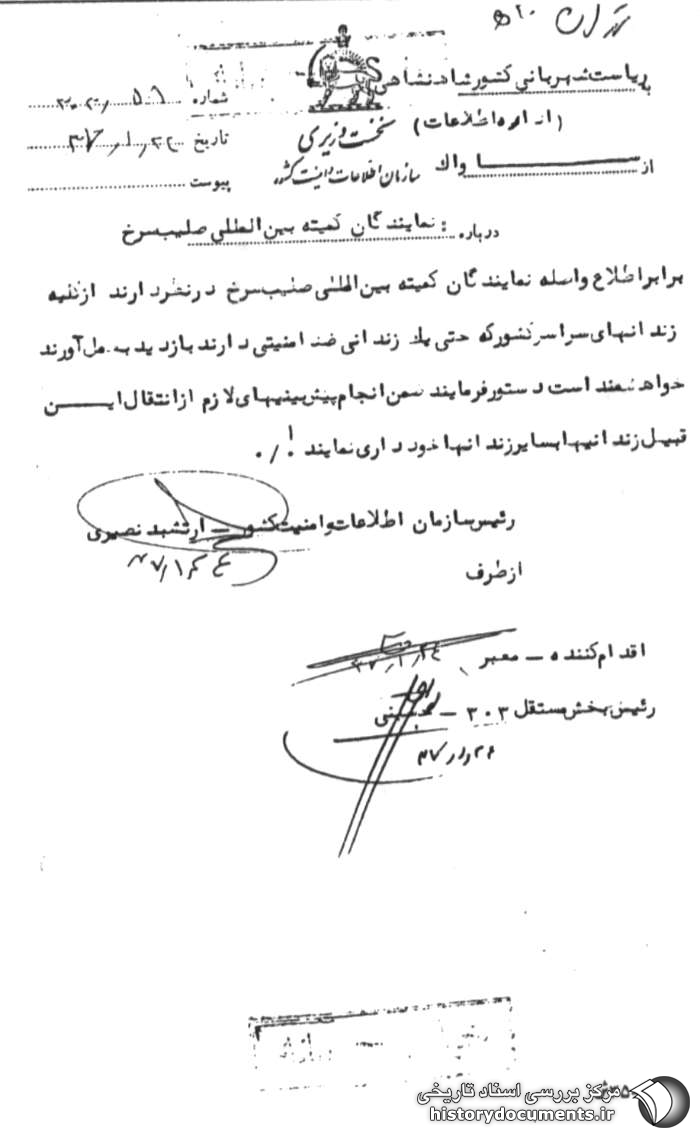 به ریاست شهربانی کشور شاهنشاهی
(اداره اطلاعات)
از ســـاواک
نخست وزیری
سازمان اطلاعات و امنیت کشور
شماره
تاریخ
پیوست
درباره : نمایندگان کمیته بین المللی صلیب سرخ
برابر اطلاع واصله نمایندگان کمیته بین المللی صلیب سرخ در نظر دارند از کلیه
زندانهای سراسر کشور که حتی یک زندانی ضد امنیتی دارند بازدید به عمل آورند
خواهشمند است دستور فرمایند ضمن انجام پیش بینیهای لازم از انتقال ایـــن
قبیل زندانیها بسایر زندانها خودداری نمایند !/.
رئیس سازمان اطلاعات و امنیت کشور ــ ارتشبد نصیری
از طرف
اقدام کننده ــ معبر
رئیس بخش مستقل ۳۰۳ ــ
مرکز بررسی اسناد تاریخی
historydocuments.ir